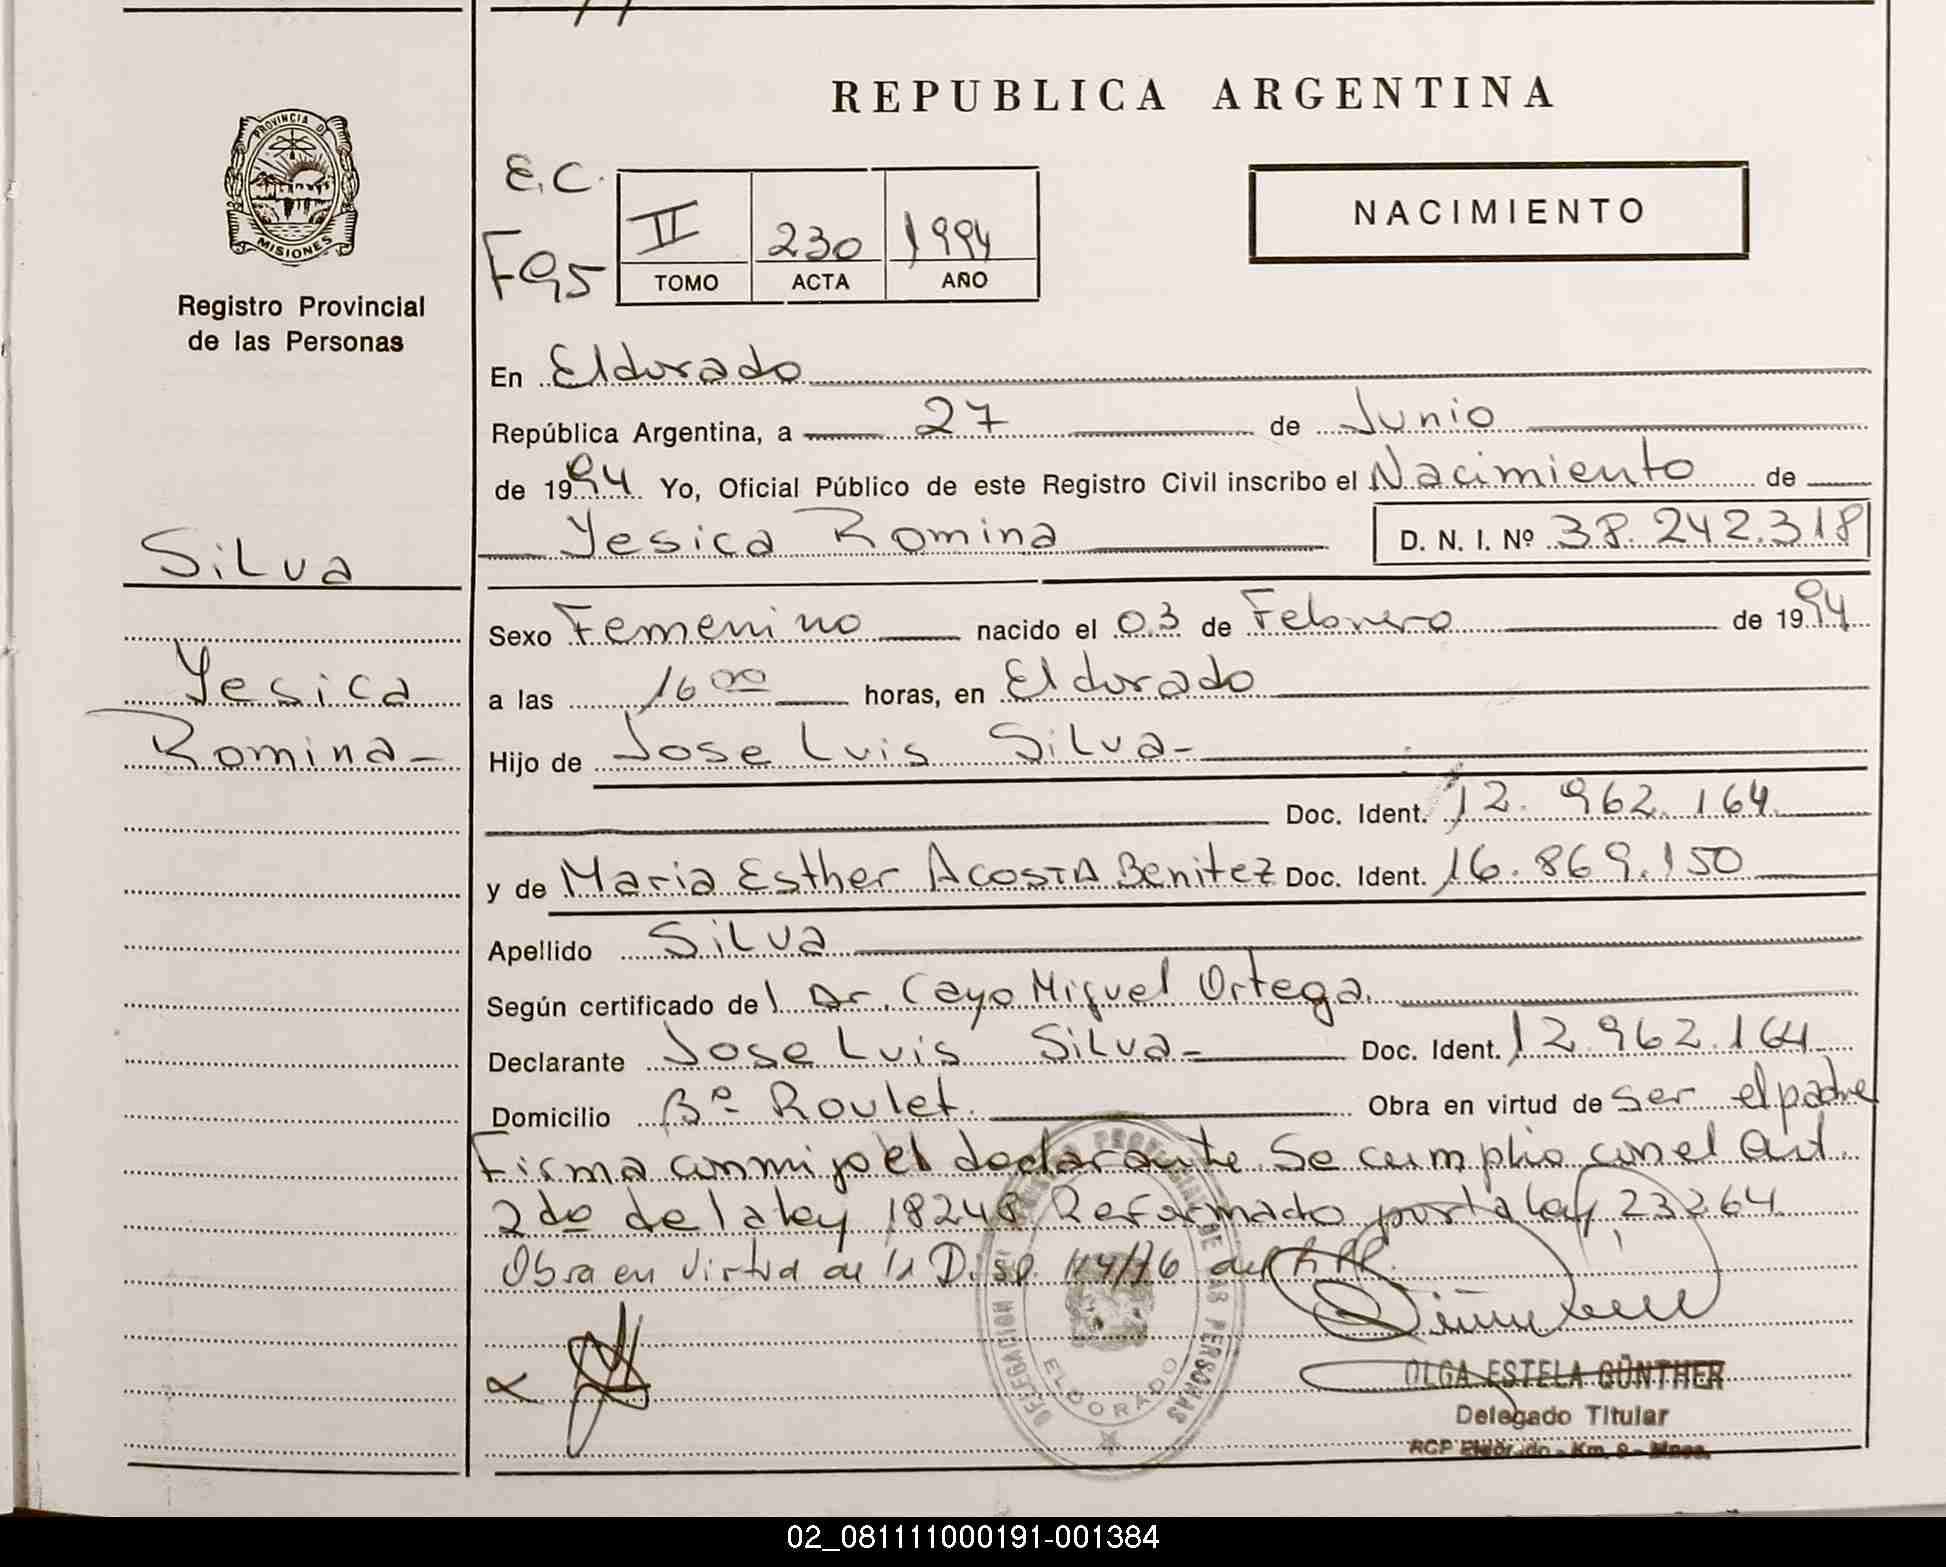 REPUBLICA ARGENTINA
PROVINCIA D
MISIONES
Registro Provincial
de las Personas
E.C.
F95
II 230 1994
TOMO ACTA AÑO
NACIMIENTO
En Eldorado
República Argentina, a 27 de Junio
de 1994 Yo, Oficial Público de este Registro Civil inscribo el Nacimiento de
Yesica Romina D. N. I. Nº 38.242.318
Silva
Yesica
Romina-
Sexo Femenino nacido el 03 de Febrero de 1994
a las 16 00 horas, en Eldorado
Hijo de Jose Luis Silva-
Doc. Ident. 12.962.164
y de Maria Esther Acosta Benitez Doc. Ident. 16.869.150
Apellido Silva
Según certificado del Dr. Cayo Miguel Ortega.
Declarante Jose Luis Silva- Doc. Ident. 12.962.164
Domicilio Bº- Roulet. Obra en virtud de ser el padre
Firma conmigo el declarante Se cumplio con el Art.
2do de la ley 18248 Reformado por la ley 23264
Obra en virtud de la Disp. 114/76 del
ELDORADO
OLGA ESTELA GÜNTHER
Delegado Titular
RCP Eldorado - Km. 9 - Mnes.
02_081111000191-001384